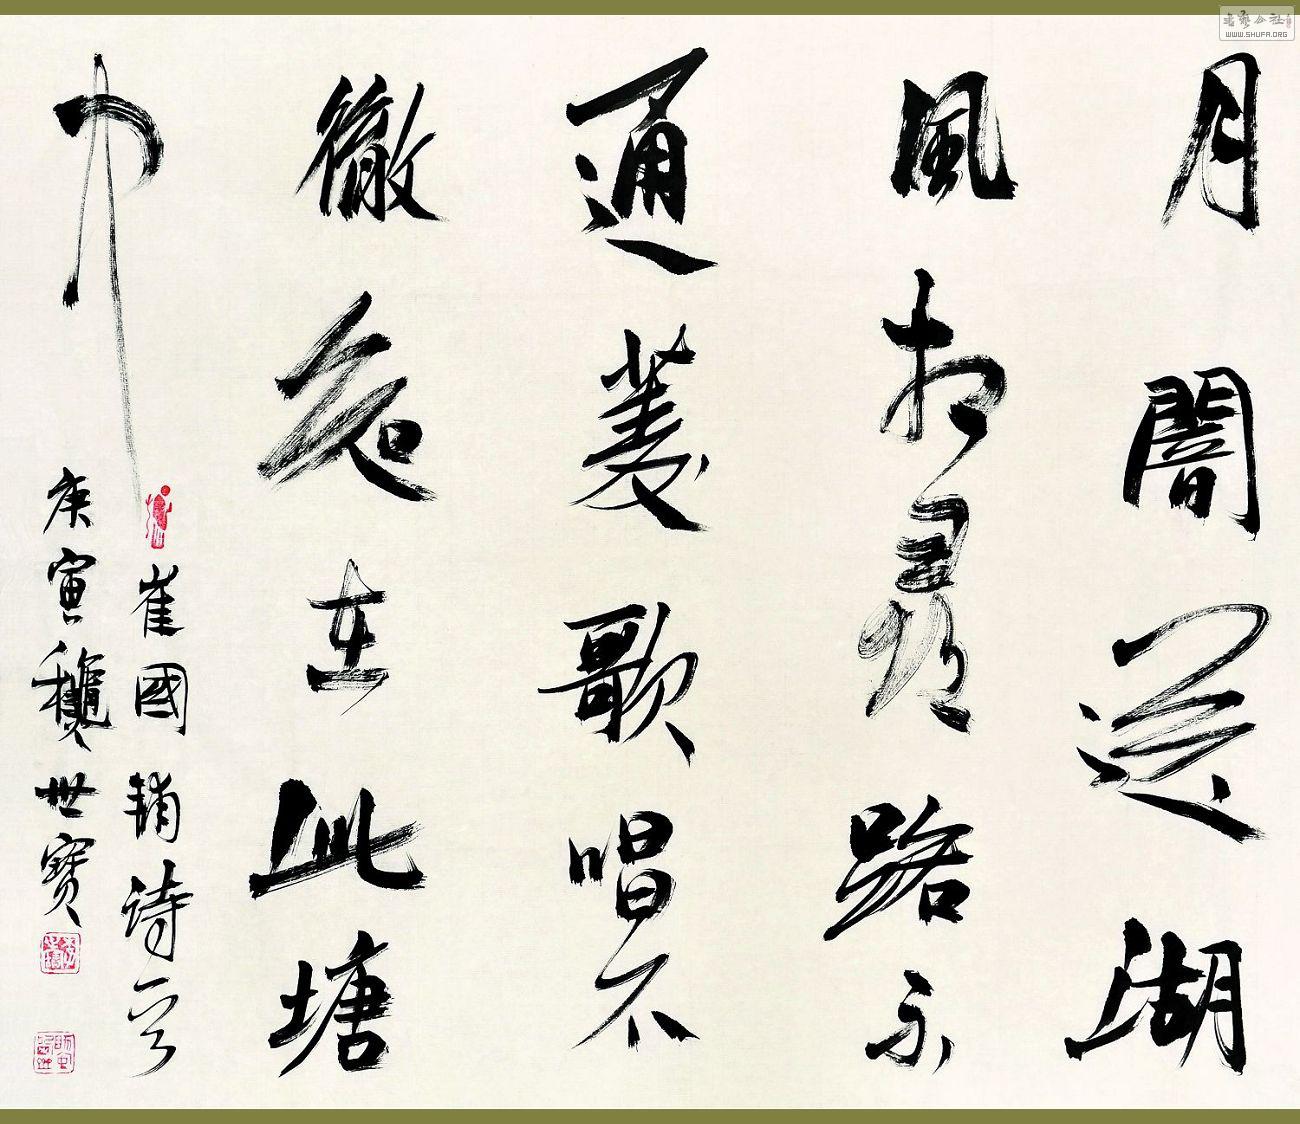 月闇送湖
風相尋路不
通菱歌唱不
徹知在此塘
中
崔國輔詩一首
庚寅龝世寶
書藝公社
WWW.SHUFA.ORG